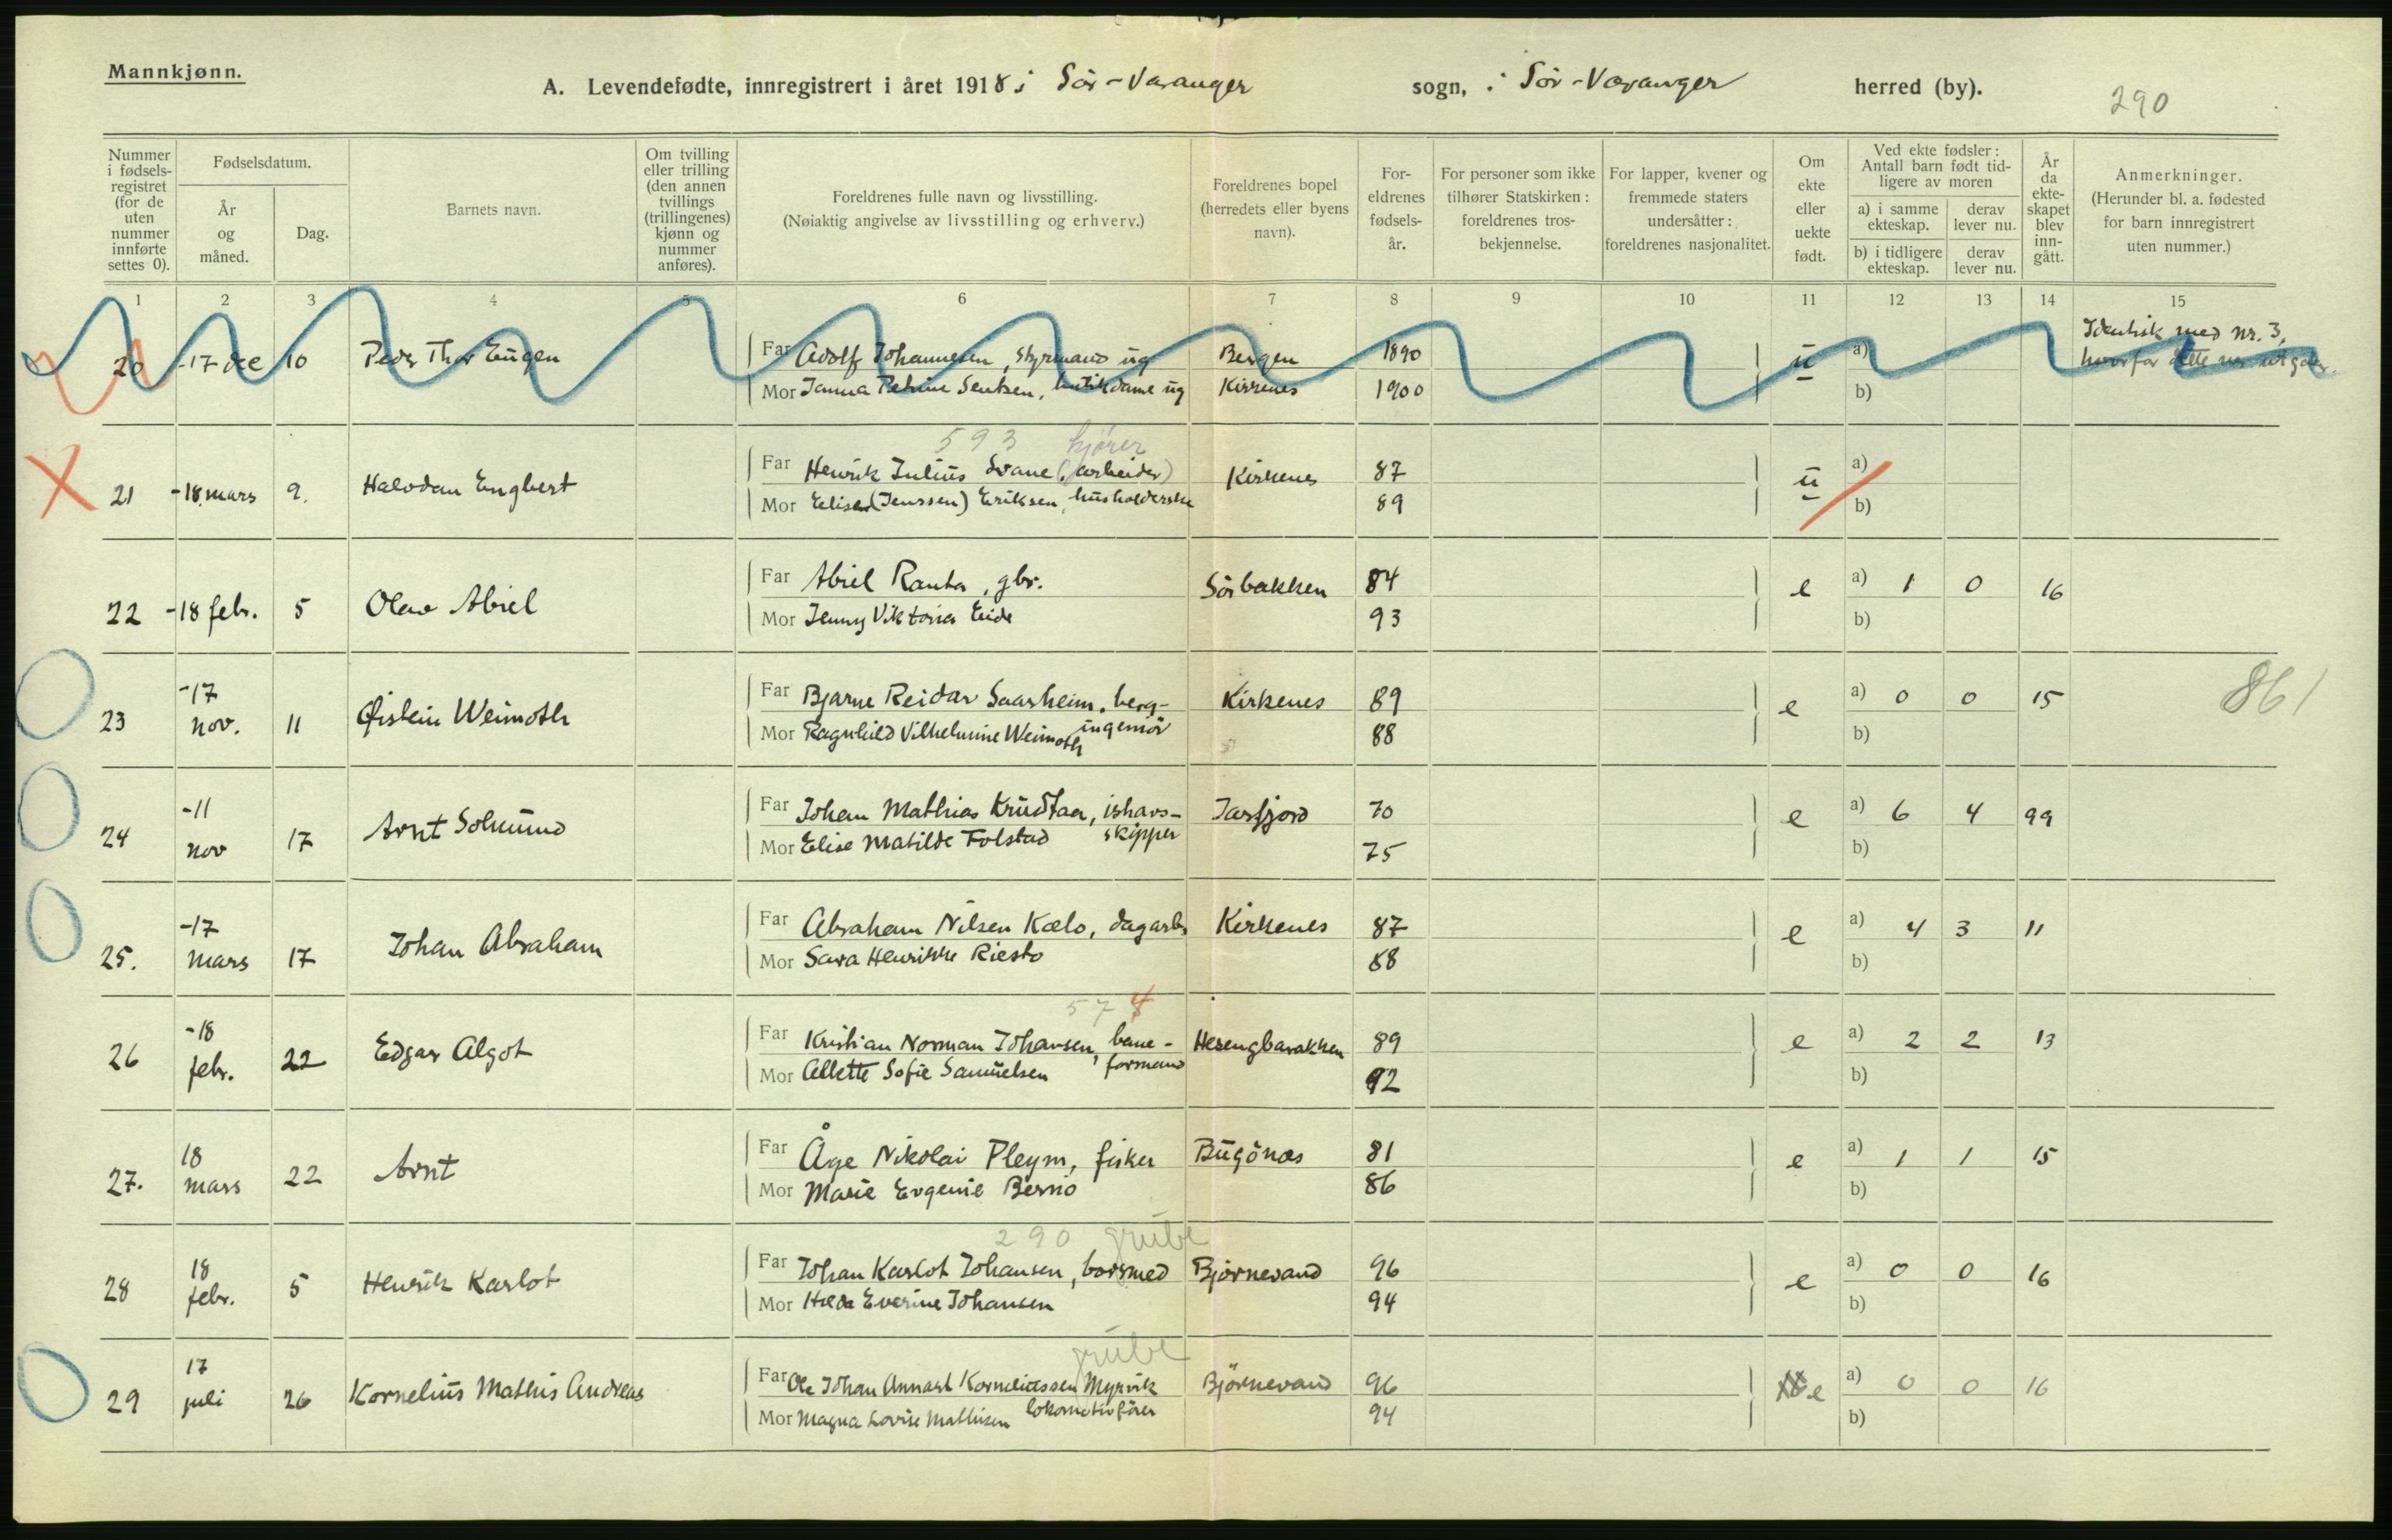 Mannkjønn.
A. Levendefødte, innregistrert i året 1918 i Sör-Varanger sogn, i Sör-Varanger herred (by).
290
Nummer i fødsels-registret (for de uten nummer innførte settes 0).
Fødselsdatum.
År og måned.
Dag.
Barnets navn.
Om tvilling eller trilling (den annen tvillings (trillingenes) kjønn og nummer anføres).
Foreldrenes fulle navn og livsstilling.
(Nøiaktig angivelse av livsstilling og erhverv.)
Foreldrenes bopel (herredets eller byens navn).
For-eldrenes fødsels-år.
For personer som ikke tilhører Statskirken: foreldrenes tros-bekjennelse.
For lapper, kvener og fremmede staters undersåtter: foreldrenes nasjonalitet.
Om ekte eller uekte født.
Ved ekte fødsler: Antall barn født tid-ligere av moren
a) i samme ekteskap.
derav lever nu.
b) i tidligere ekteskap.
derav lever nu.
År da ekte-skapet blev inn-gått.
Anmerkninger.
(Herunder bl. a. fødested for barn innregistrert uten nummer.)
1 2 3 4 5 6 7 8 9 10 11 12 13 14 15
20 -17 dec 10 Peder Thor Eugen Far Adolf Johannesen, styrmand ug Bergen 1890 ü a) Identisk med nr. 3,
hvorfor dette nr. utgaar.
Mor Janna Petrine Sentsen, butikdame ug Kirkenes 1900 b)
593 kjører
21 -18 mars 9. Halvdan Engbert Far Henrik Julius Svane (arbeider) Kirkenes 87 ü a)
Mor Elise (Jenssen) Eriksen, husholderske 89 b)
22 -18 febr. 5 Olav Abiel Far Abiel Ranta, gbr. Sörbakken 84 e a) 1 0 16
Mor Jenny Viktoria Eide 93 b)
23 -17 nov. 11 Øistein Weimoth Far Bjarne Reidar Saarheim, berg- Kirkenes 89 e a) 0 0 15 861
ingeniör
Mor Ragnhild Vilhelmine Weimoth 88 b)
24 -11 nov 17 Arnt Solmund Far Johan Mathias Krudtaa, ishavs- Jarfjord 70 e a) 6 4 99
skipper
Mor Elise Matilde Folstad 75 b)
25. -17 mars 17 Johan Abraham Far Abraham Nilsen Kælo, dagarb. Kirkenes 87 e a) 4 3 11
Mor Sara Henrikke Riesto 88 b)
57 4
26 -18 febr. 22 Edgar Algot Far Kristian Norman Johansen, bane- Hesengbarakken 89 e a) 2 2 13
formand
Mor Allette Sofie Samuelsen 92 b)
27. 18 mars 22 Arnt Far Åge Nikolai Pleym, fisker Bugönæs 81 e a) 1 1 15
Mor Marie Evgenie Bernö 86 b)
290 grube
28 18 febr. 5 Henrik Karlot Far Johan Karlot Johansen, borsmed Björnevand 96 e a) 0 0 16
Mor Hilda Everine Johansen 94 b)
grube
29 17 juli 26 Kornelius Mathis Andreas Far Ole Johan Annart Korneliussen Myrvik Björnevand 96 e a) 0 0 16
lokomotivförer
Mor Magna Lovise Mathisen 94 b)